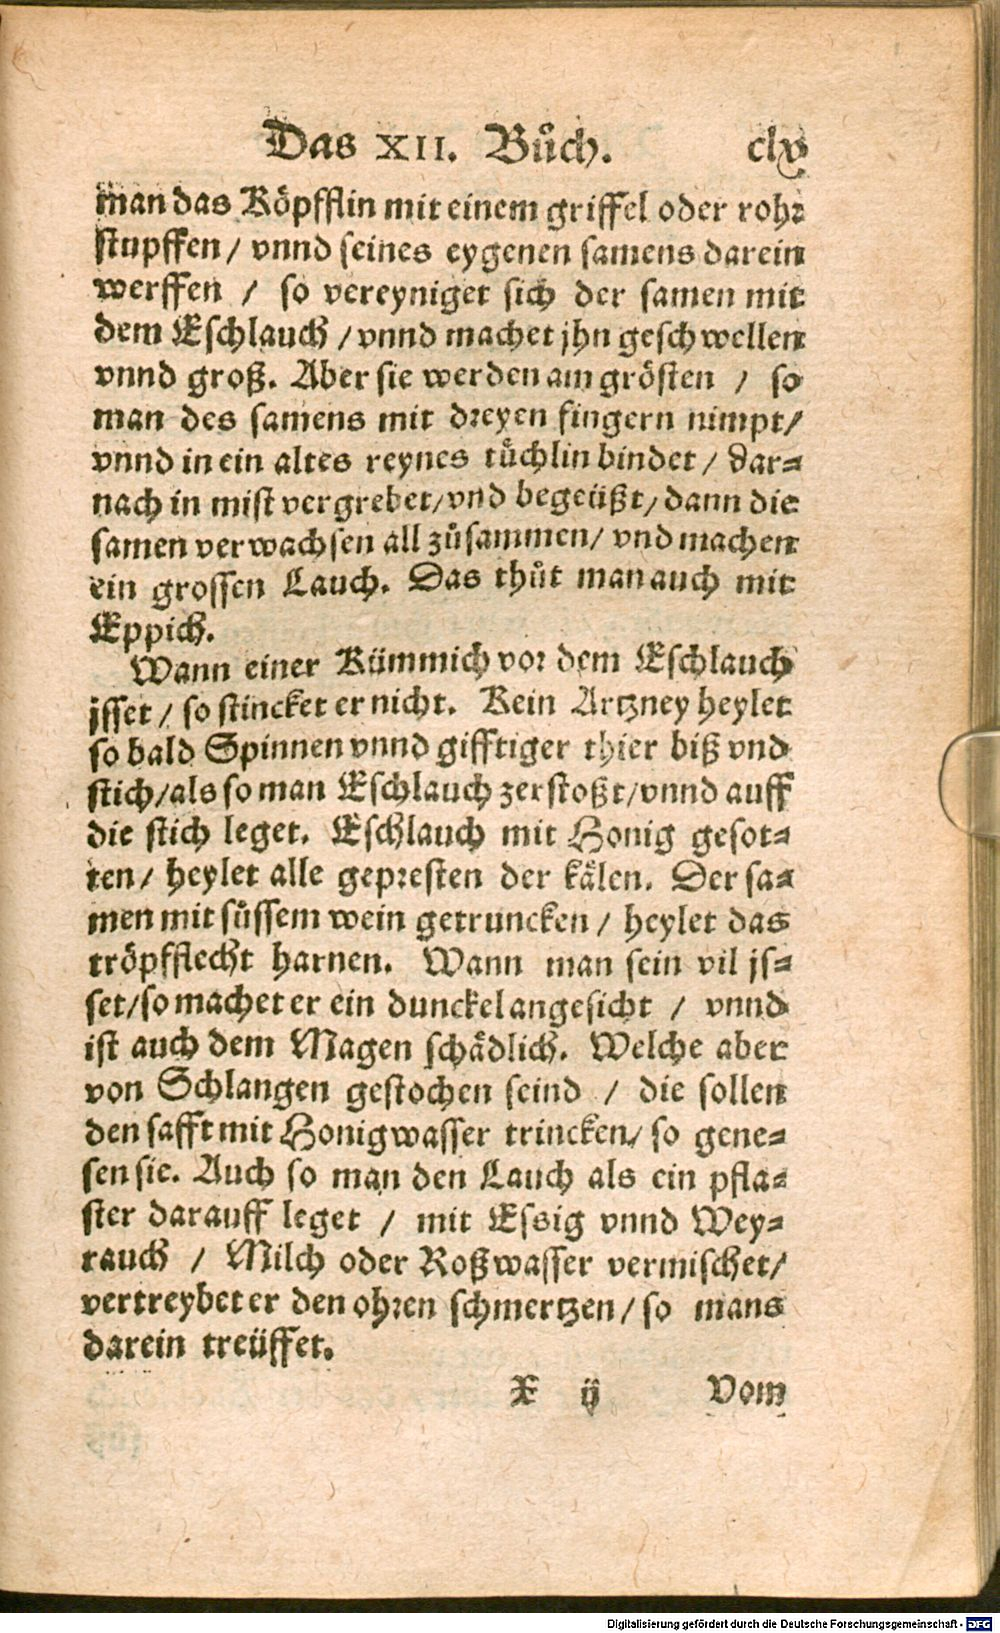 Das XII. Bůch. clv
man das Köpfflin mit einem griffel oder rohr
stupffen / vnnd seines eygenen samens darein
werffen / so vereyniget sich der samen mit
dem Eschlauch / vnnd machet jhn geschwellen
vnnd groß. Aber sie werden am grösten / so
man des samens mit dreyen fingern nimpt /
vnnd in ein altes reynes tůchlin bindet / dar⸗
nach in mist vergrebet / vnd begeüßt / dann die
samen verwachsen all zůsammen / vnd machen
ein grossen Lauch. Das thůt man auch mit
Eppich.
Wann einer Kümmich vor dem Eschlauch
jsset / so stincket er nicht. Kein Artzney heylet
so bald Spinnen vnnd gifftiger thier biß vnd
stich / als so man Eschlauch zerstoßt / vnnd auff
die stich leget. Eschlauch mit Honig gesot⸗
ten / heylet alle gepresten der kälen. Der sa⸗
men mit sůssem wein getruncken / heylet das
tröpfflecht harnen. Wann man sein vil js⸗
set / so machet er ein dunckel angesicht / vnnd
ist auch dem Magen schädlich. Welche aber
von Schlangen gestochen seind / die sollen
den safft mit Honigwasser trincken / so gene⸗
sen sie. Auch so man den Lauch als ein pfla⸗
ster darauff leget / mit Essig vnnd Wey⸗
rauch / Milch oder Roßwasser vermischet /
vertreybet er den ohren schmertzen / so mans
darein treüffet.
X ij Vom
Digitalisierung gefördert durch die Deutsche Forschungsgemeinschaft - DFG